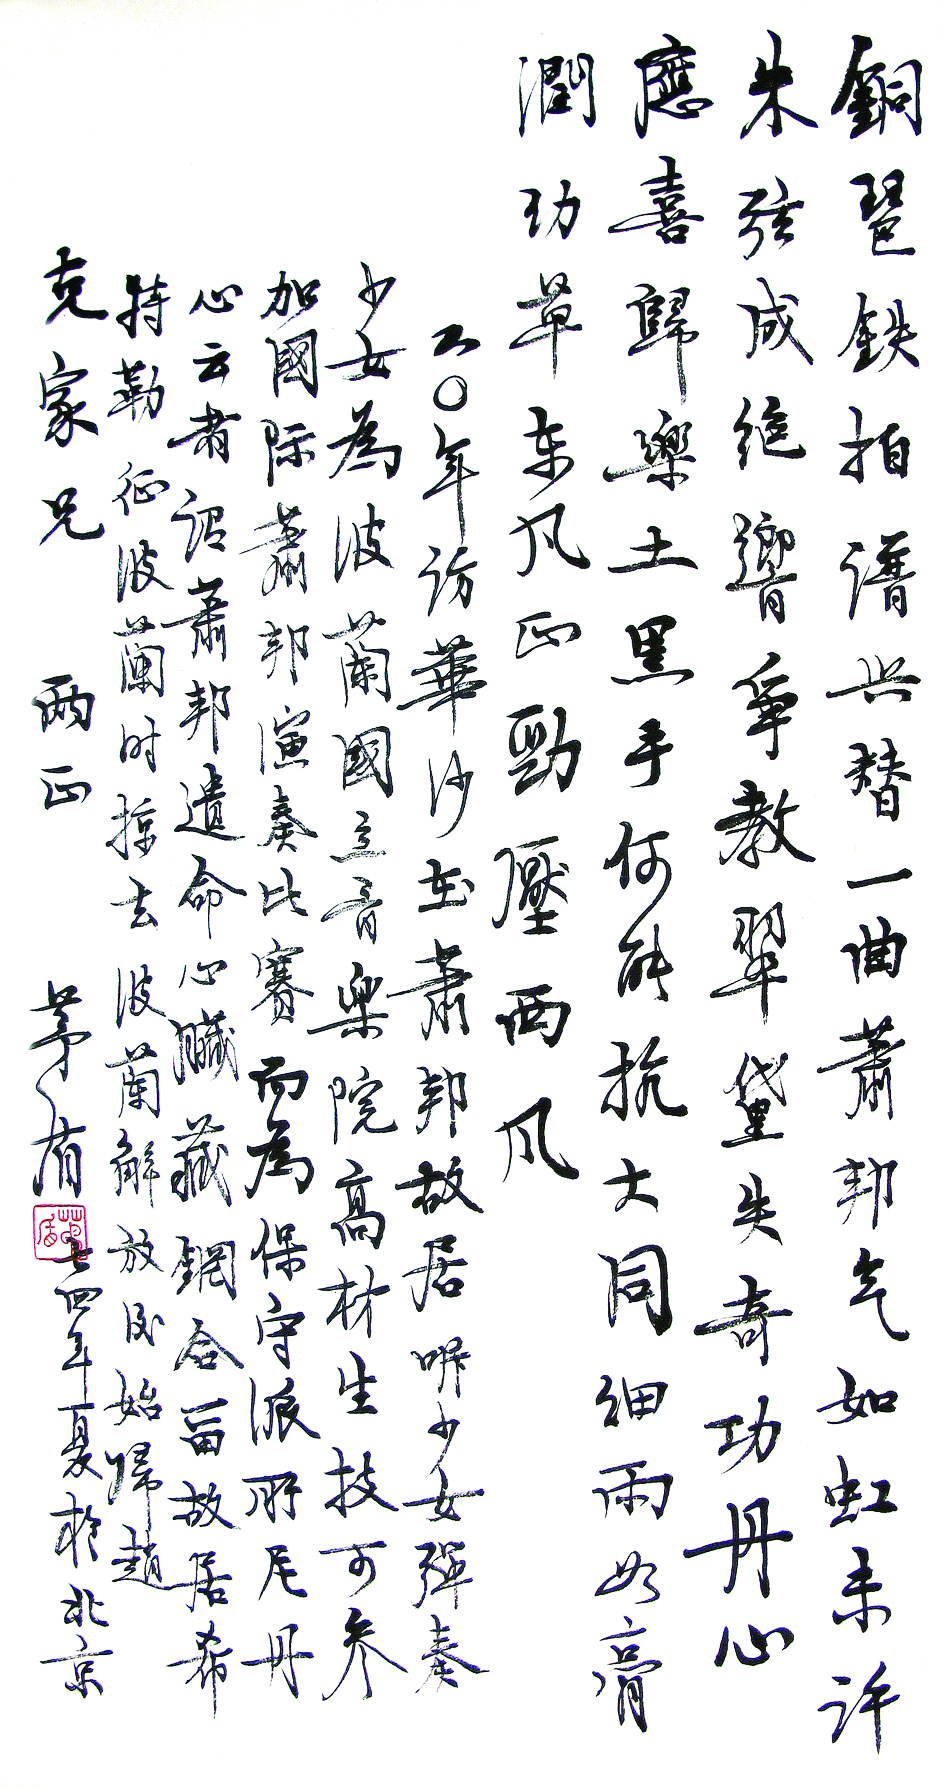 銅琶鉄拍譜興替一曲蕭邦气如虹未許
朱弦成絶響爭教翠黛失奇功丹心
應喜歸樂土黑手何能抗大同细雨如膏
潤功草东风正勁壓西风
五〇年訪華沙在蕭邦故居听少女彈奏
少女為波蘭國立音樂院高材生技可参
加國际蕭邦演奏比赛而為保守派所厄丹
心云者谓蕭邦遺命心臟藏銅合留故居希
特勒征波蘭时掠去波蘭解放后始歸趙
克家兄 两正 茅盾 七四年夏於北京
茅盾